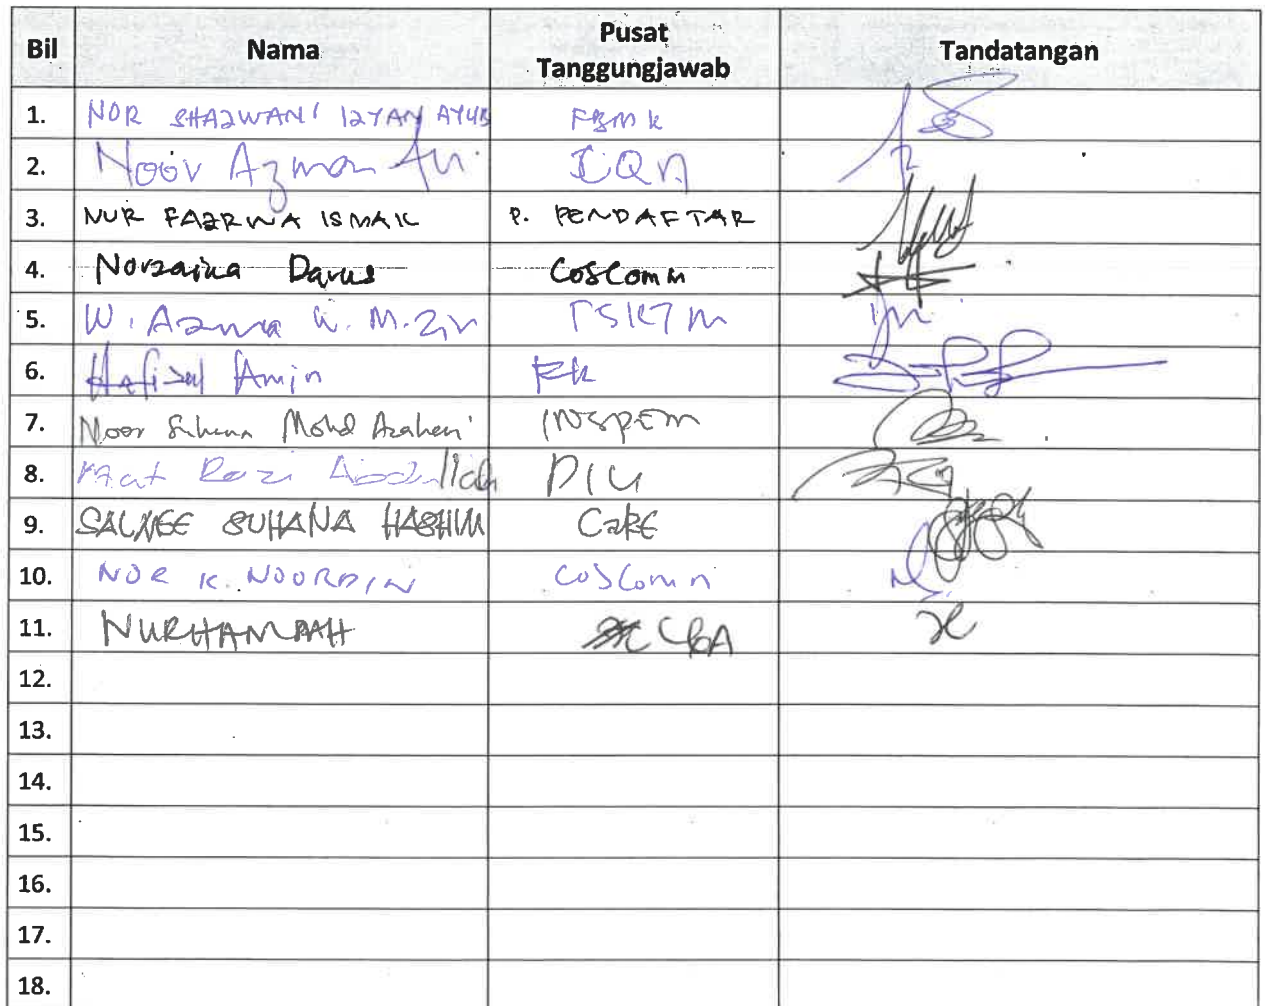 Bil Nama Pusat Tanggungjawab Tandatangan
1. NOR SHAZWANI IZYAN AYUB FBMK
2. Noor Azman Ali
3. NUR FAZRWA ISMAIL P. PENDAFTAR
4. Norzaina Darus CosComm
5. W. Azwa W. M. Zin
6. Hafizul Amin
7. Noor Suhana Mohd Azaheri INSPEM
8. Mat Razi Abdullah
9. SALNEE SUHANA HASHIM CaRE
10. NOR K. NOORDIN CosComm
11. NURHAMIDAH
12.
13.
14.
15.
16.
17.
18.